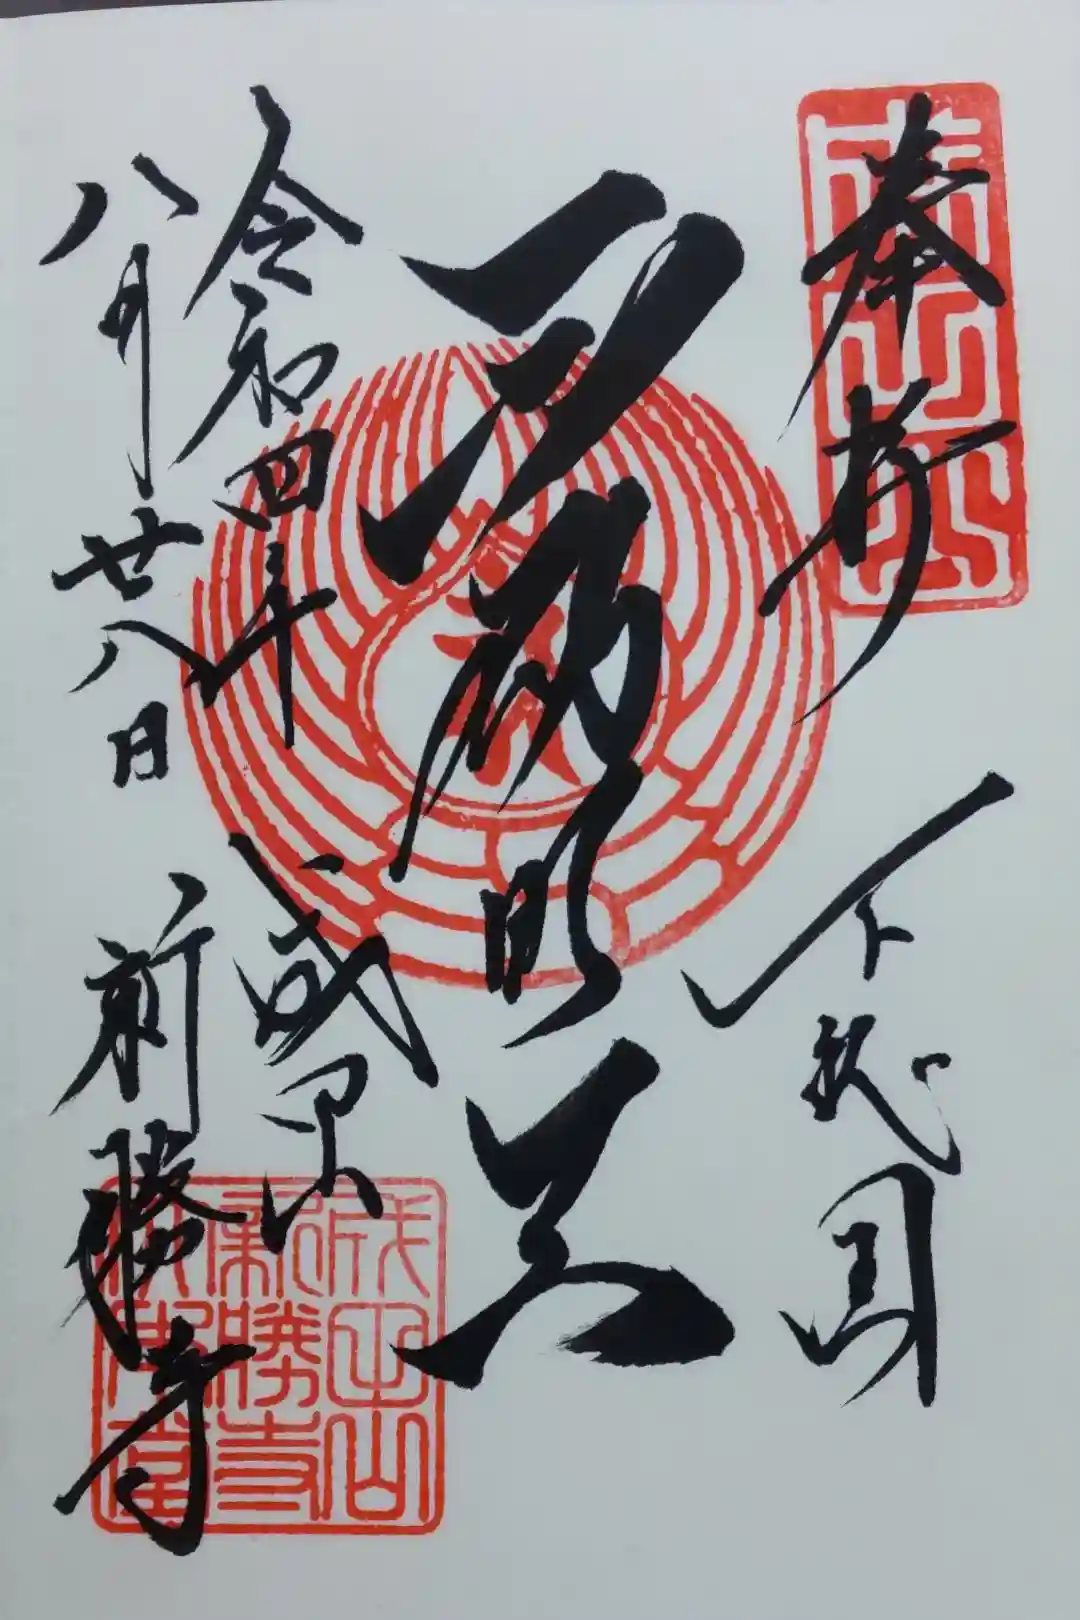 成田山
奉拝
下総国
不動明王
令和四年
八月廿八日
成田山
新勝寺
成田山
新勝寺